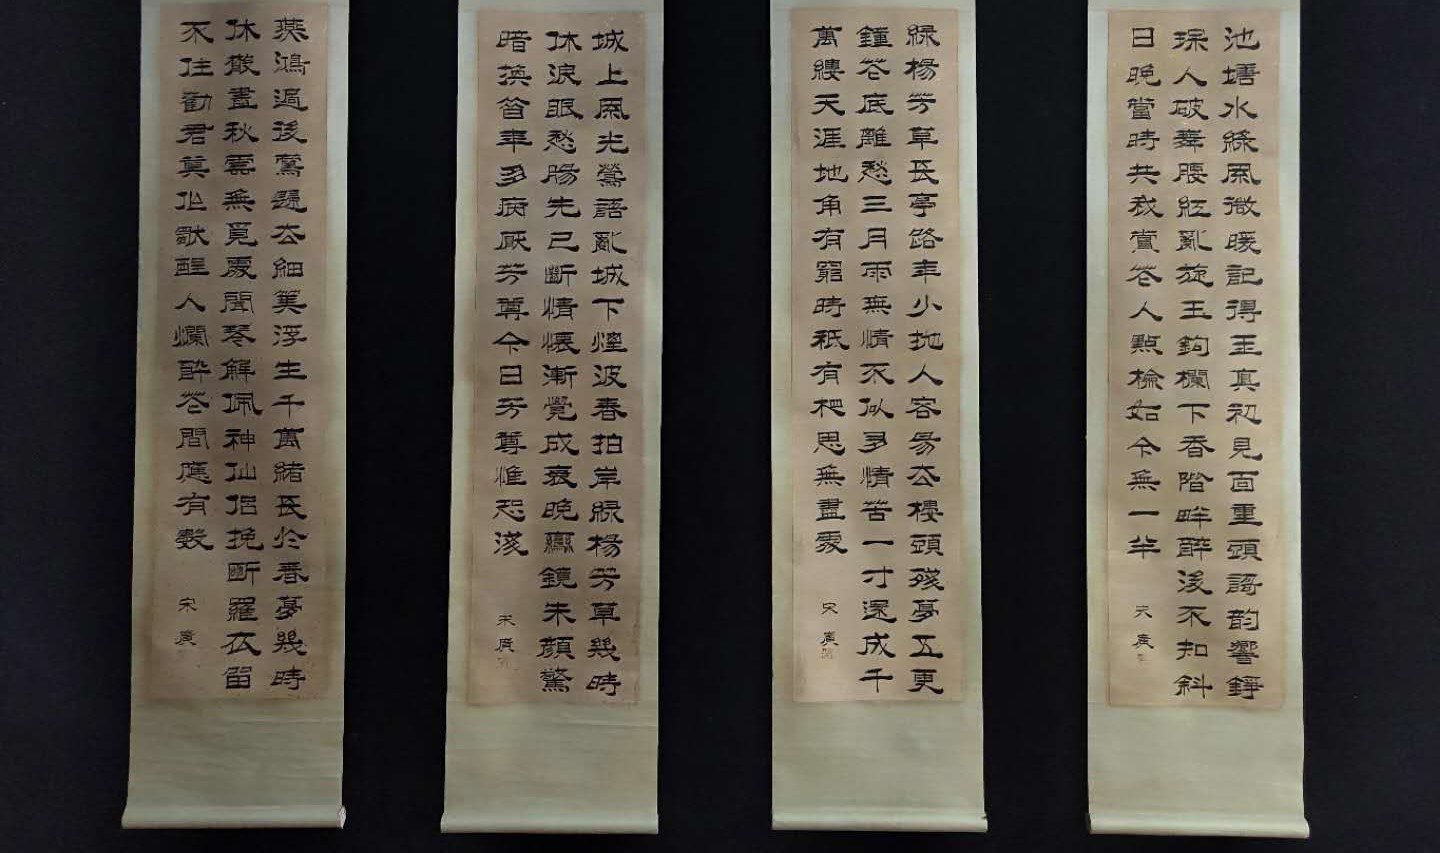 池塘水綠風微暖記得玉真初見面重頭謌韵響錚
琮入破舞腰紅亂旋玉鉤欄下香階畔醉後不知斜
日晚當時共我賞花人點檢如今無一半
宋廣
綠楊芳草長亭路年少拋人容易去樓頭殘夢五更
鐘花底離愁三月雨無情不似多情苦一寸還成千
萬縷天涯地角有窮時祇有相思無盡處
宋廣
城上風光鶯語亂城下煙波春拍岸綠楊芳草幾時
休淚眼愁腸先已斷情懷漸覺成衰晚鸞鏡朱顏驚
暗換昔年多病厭芳尊今日芳尊惟恐淺
宋廣
燕鴻過後鶯歸去細算浮生千萬緒長於春夢幾時
休散盡秋雲無覓處聞琴解佩神仙侶挽斷羅衣留
不住勸君莫作獨醒人爛醉花間應有數
宋廣